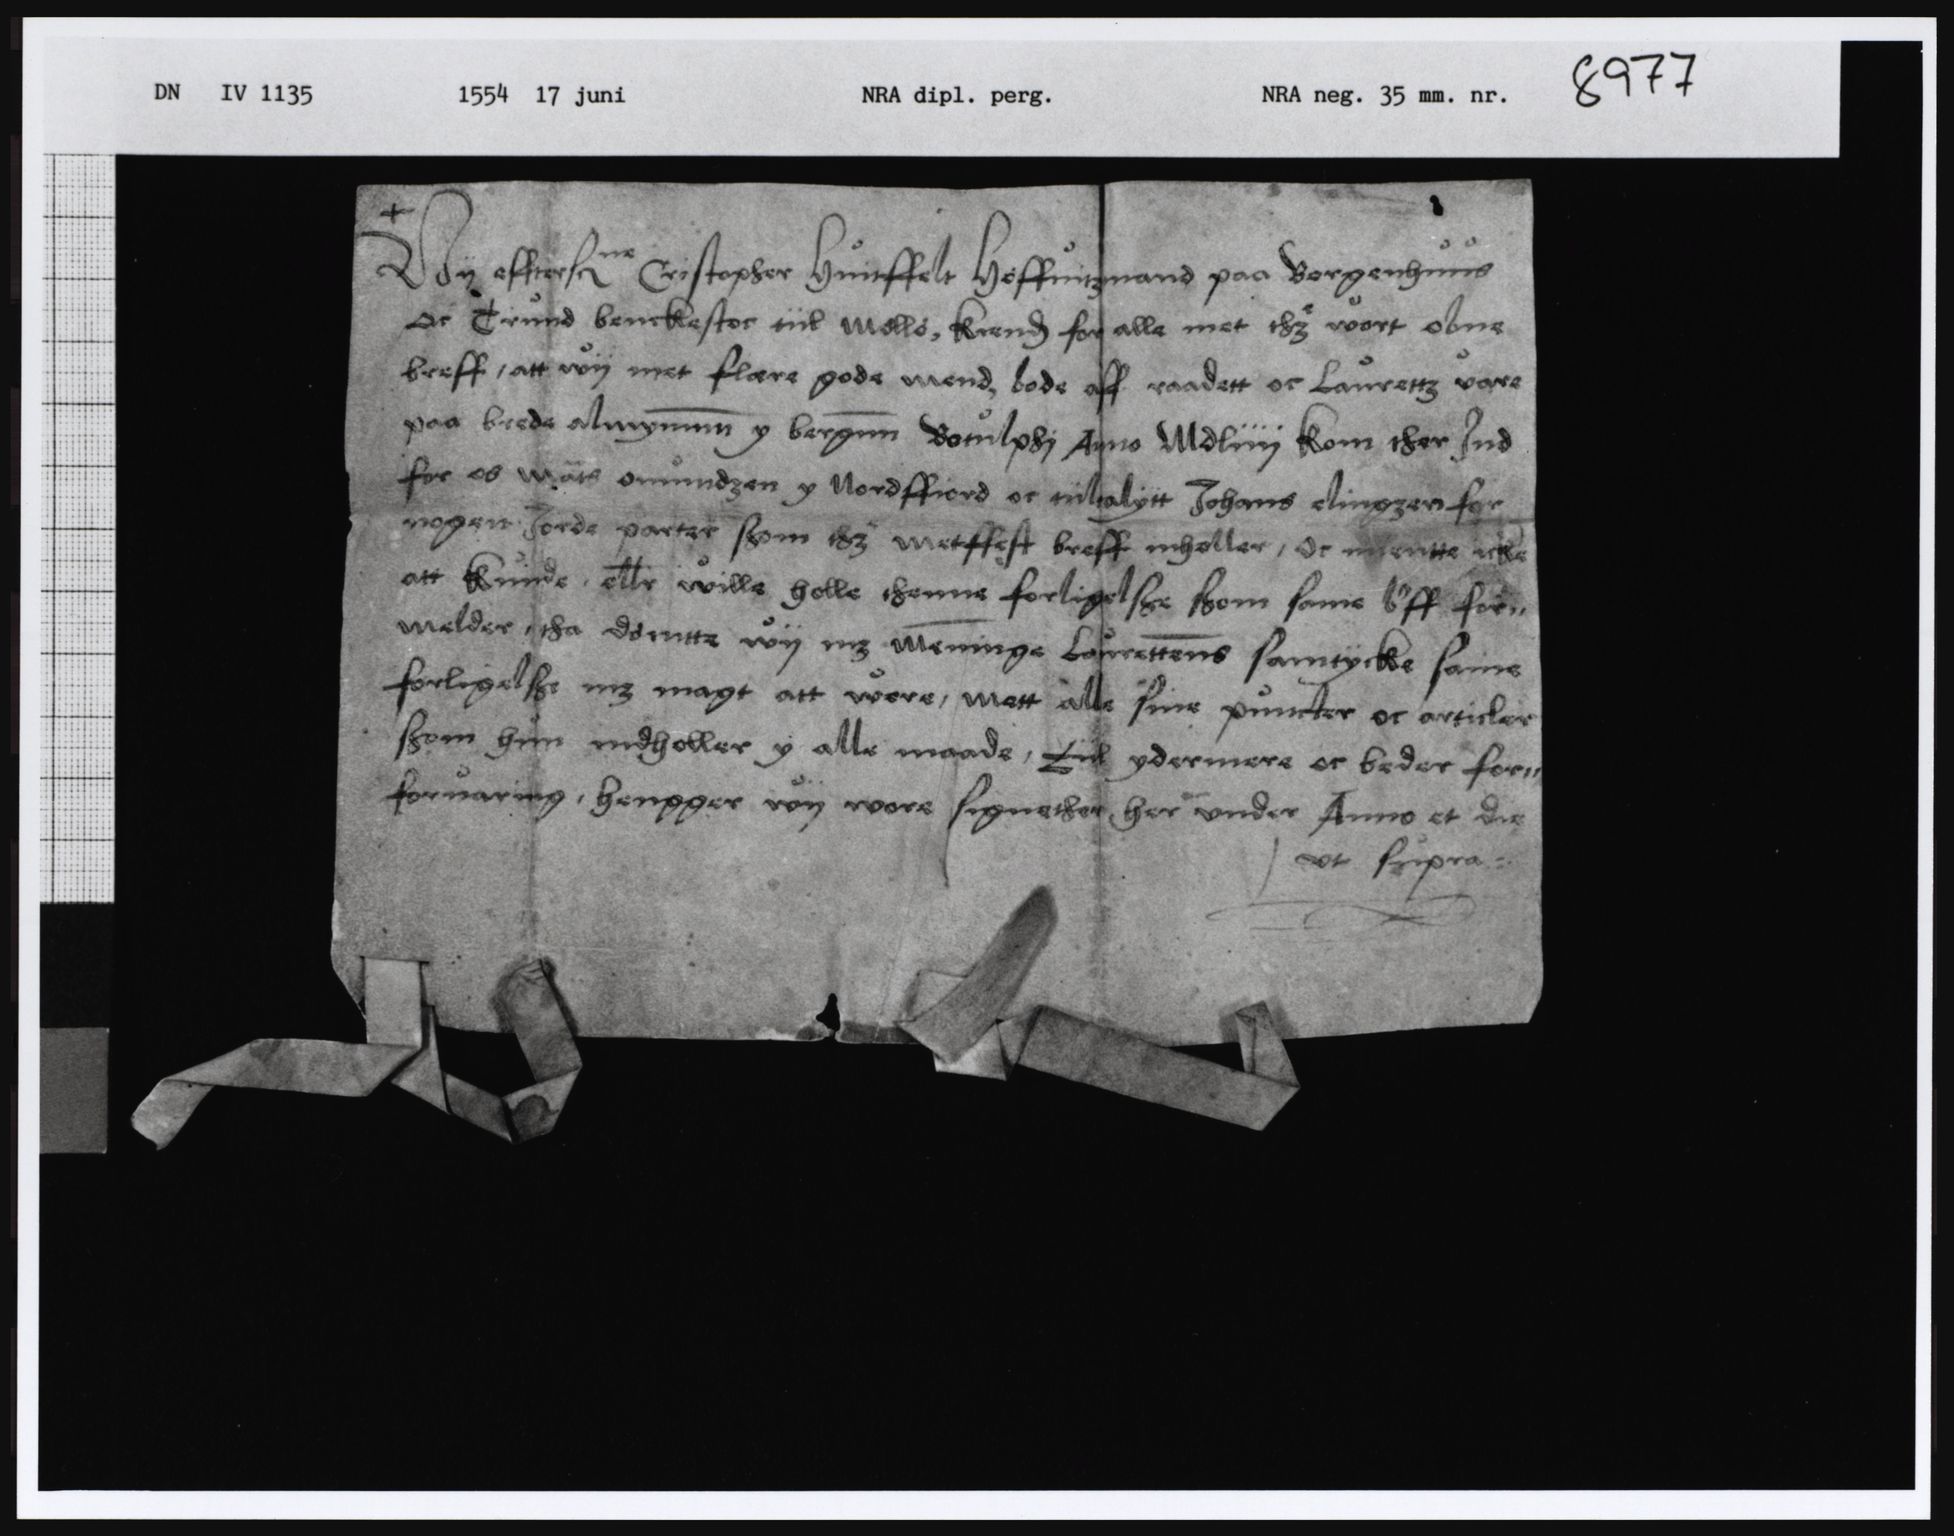 DN IV 1135 1554 17 juni NRA dipl. perg. NRA neg. 35 mm. nr. 8977
Wij effterscne Cristopher Huitffelt Höffuitzmand paa Bergenhuus
oc Trund benckestoc tiil Mellö, kiende for alle met thz wort obne
breff, att wij met flere gode mend, bode aff raadett oc Laurettz vare
paa brede almynnini y bergenn Botulphi Anno Mdliiij kom ther Ind
for os Mats omundzen y Nordffiord oc tiiltalytt Johans elingzen for
nogen Jorde parter som thz metffest breff inholler, oc mentte icke
att kunde ellr wille holle thenne forligelsze szom same bff for,,
melder, tha dömtte wij mz Meninge Laurettens samtycke same
forligelsze mz magt att were, mett alle sine puncter oc articler
szom hun indholler y alle maade, Tiil ydermere oc beder for,,
foruaring, hengger wij wore signether her vnder Anno et die
vt supra